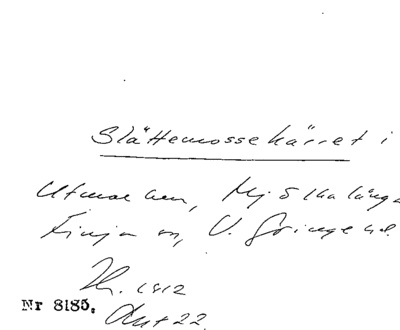 Slättemossekärret i
Utmarken, Mjölkalånga
Finja sn, V. Göinge hd.
Nr 8185.